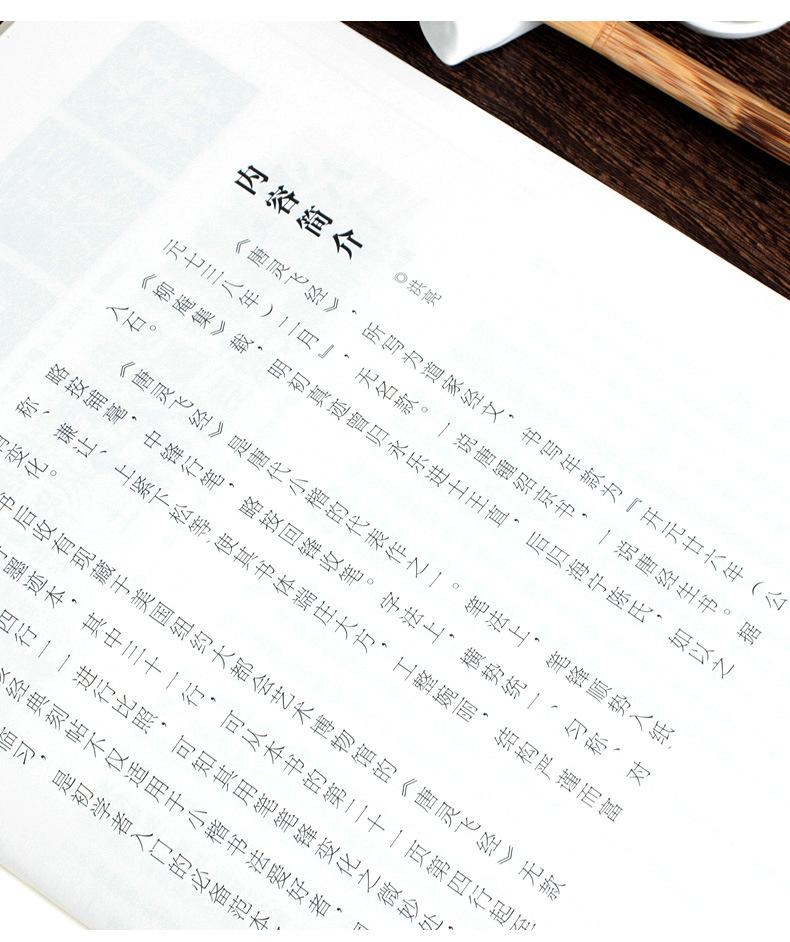 内容简介
◎洪亮
《唐灵飞经》，所写为道家经文，书写年款为『开元廿六年（公
元七三八年（二月』，无名款。一说唐锺绍京书，一说唐经生书。据
《柳庵集》载，明初真迹曾归永乐进士王直，后归海宁陈氏，如以之
入石。
《唐灵飞经》是唐代小楷的代表作之一。笔法上，笔锋顺势入纸，
略按铺毫，中锋行笔，略按回锋收笔。字法上，横势统一、匀称、对
称、谦让、上紧下松等，使其书体端庄大方，工整婉丽，结构严谨而富
变化。
书后收有现藏于美国纽约大都会艺术博物馆的《唐灵飞经》无款
墨迹本，其中三十一行，可从本书的第二十一页第四行起至
四行一一进行比照，可知其用笔笔锋变化之微妙处，
经典刻帖不仅适用于小楷书法爱好者，
临习，是初学者入门的必备范本